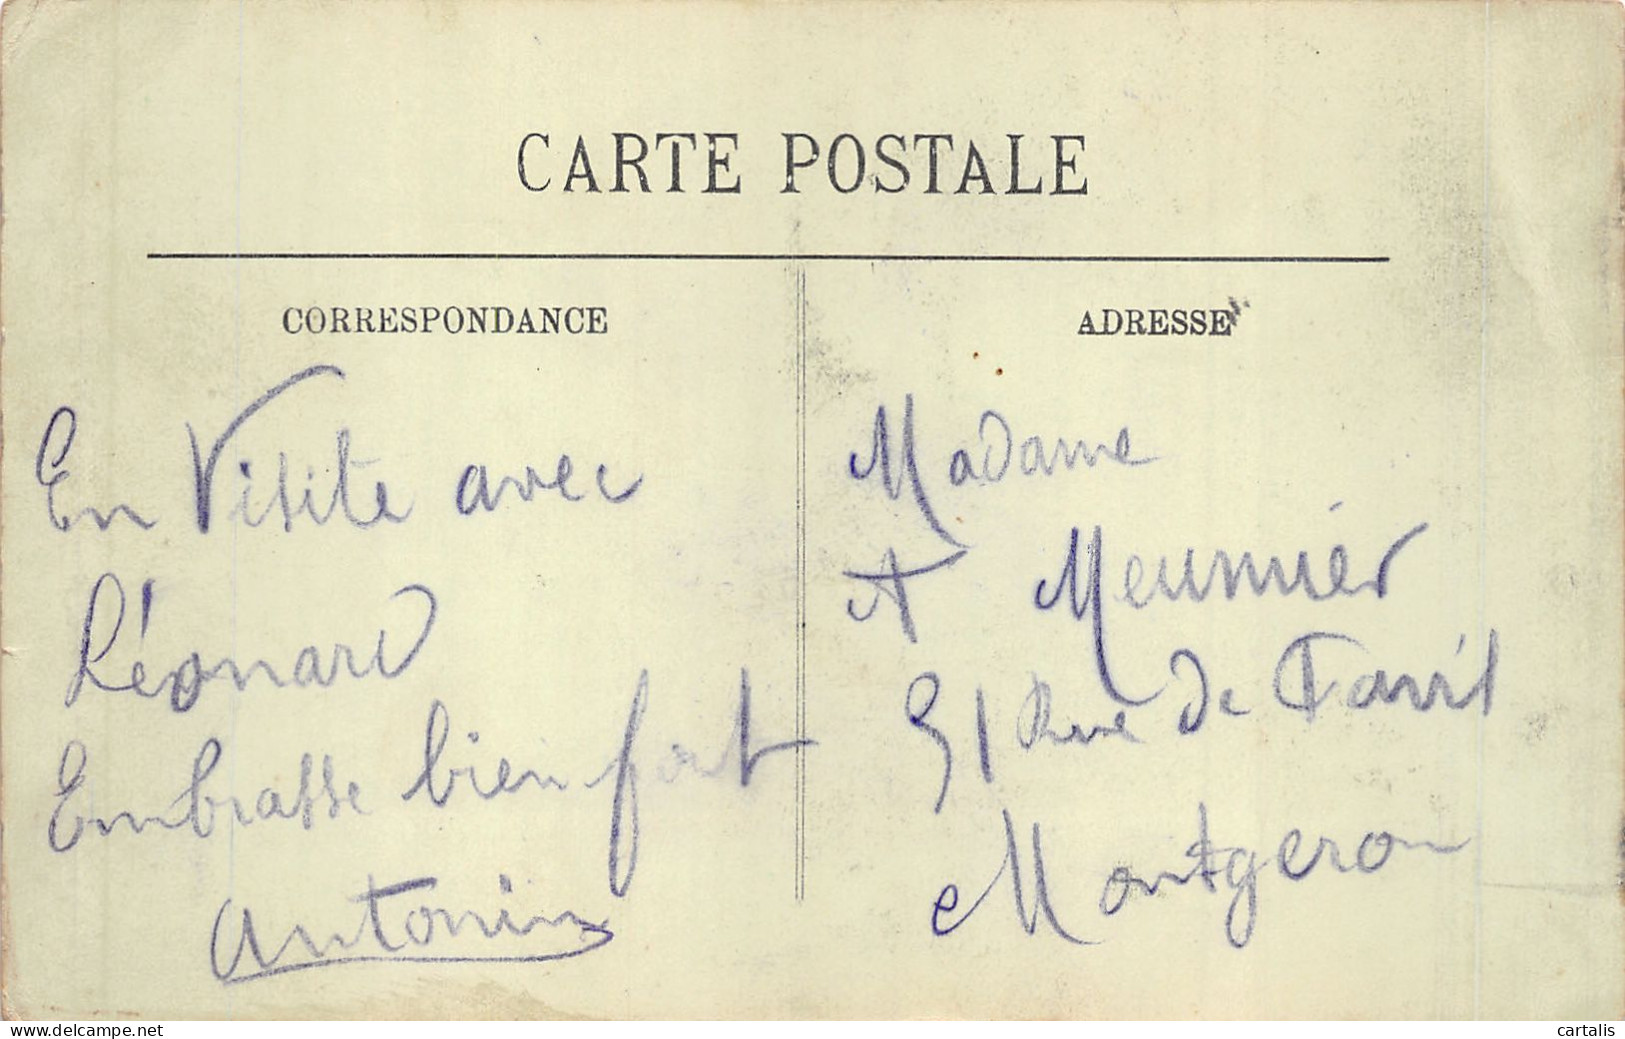 CARTE POSTALE
CORRESPONDANCE
En Visite avec
Léonard
Embrasse bien fort
Antonin
ADRESSE
Madame
A Meunier
51 Rue de
Montgeron
cartalis